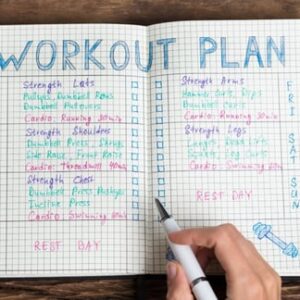 WORKOUT PLAN
Strength Lats
Pullups, Dumbbell Rows
Dumbbell Pullovers
Cardio: Running 30min
Strength Shoulders
Dumbbell Press, Shrugs
Side Raise, Front Raise
Cardio: Threadmill 40min
Strength Chest
Dumbbell Press, Pushups
Incline Press
Cardio Swimming 60min
REST DAY
Strength Arms
Hammer Curls, Dips
Dumbbell Curls
Cardio: Running 30min
Strength Legs
Lunges, Dead Lifts
Squats, Leg Curls
Cardio Swimming
REST DAY
FRI
SAT
SUN